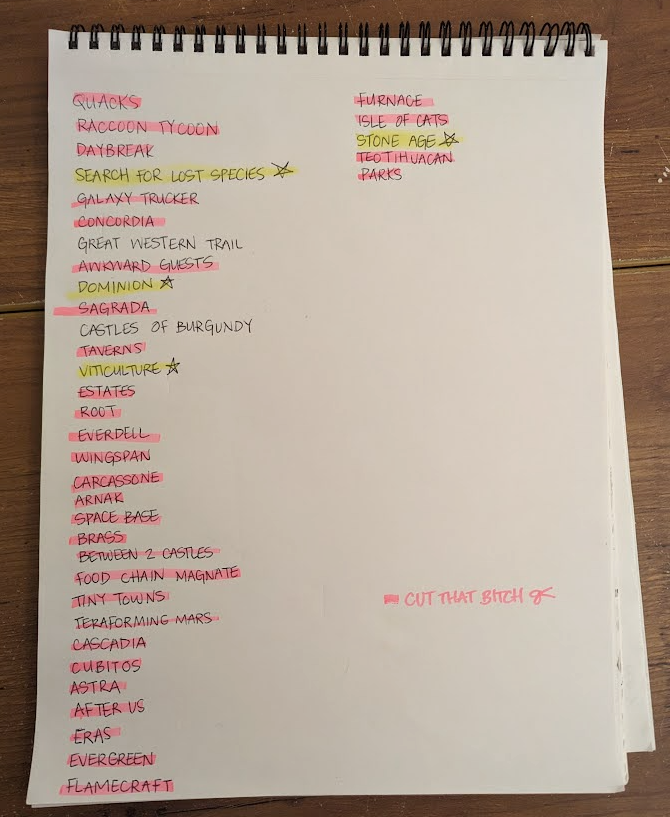 QUACKS
RACCOON TYCOON
DAYBREAK
SEARCH FOR LOST SPECIES
GALAXY TRUCKER
CONCORDIA
GREAT WESTERN TRAIL
AWKWARD GUESTS
DOMINION
SAGRADA
CASTLES OF BURGUNDY
TAVERNS
VITICULTURE
ESTATES
ROOT
EVERDELL
WINGSPAN
CARCASSONE
ARNAK
SPACE BASE
BRASS
BETWEEN 2 CASTLES
FOOD CHAIN MAGNATE
TINY TOWNS
TERAFORMING MARS
CASCADIA
CUBITOS
ASTRA
AFTER US
ERAS
EVERGREEN
FLAMECRAFT
FURNACE
ISLE OF CATS
STONE AGE
TEOTIHUACAN
PARKS
CUT THAT BITCH